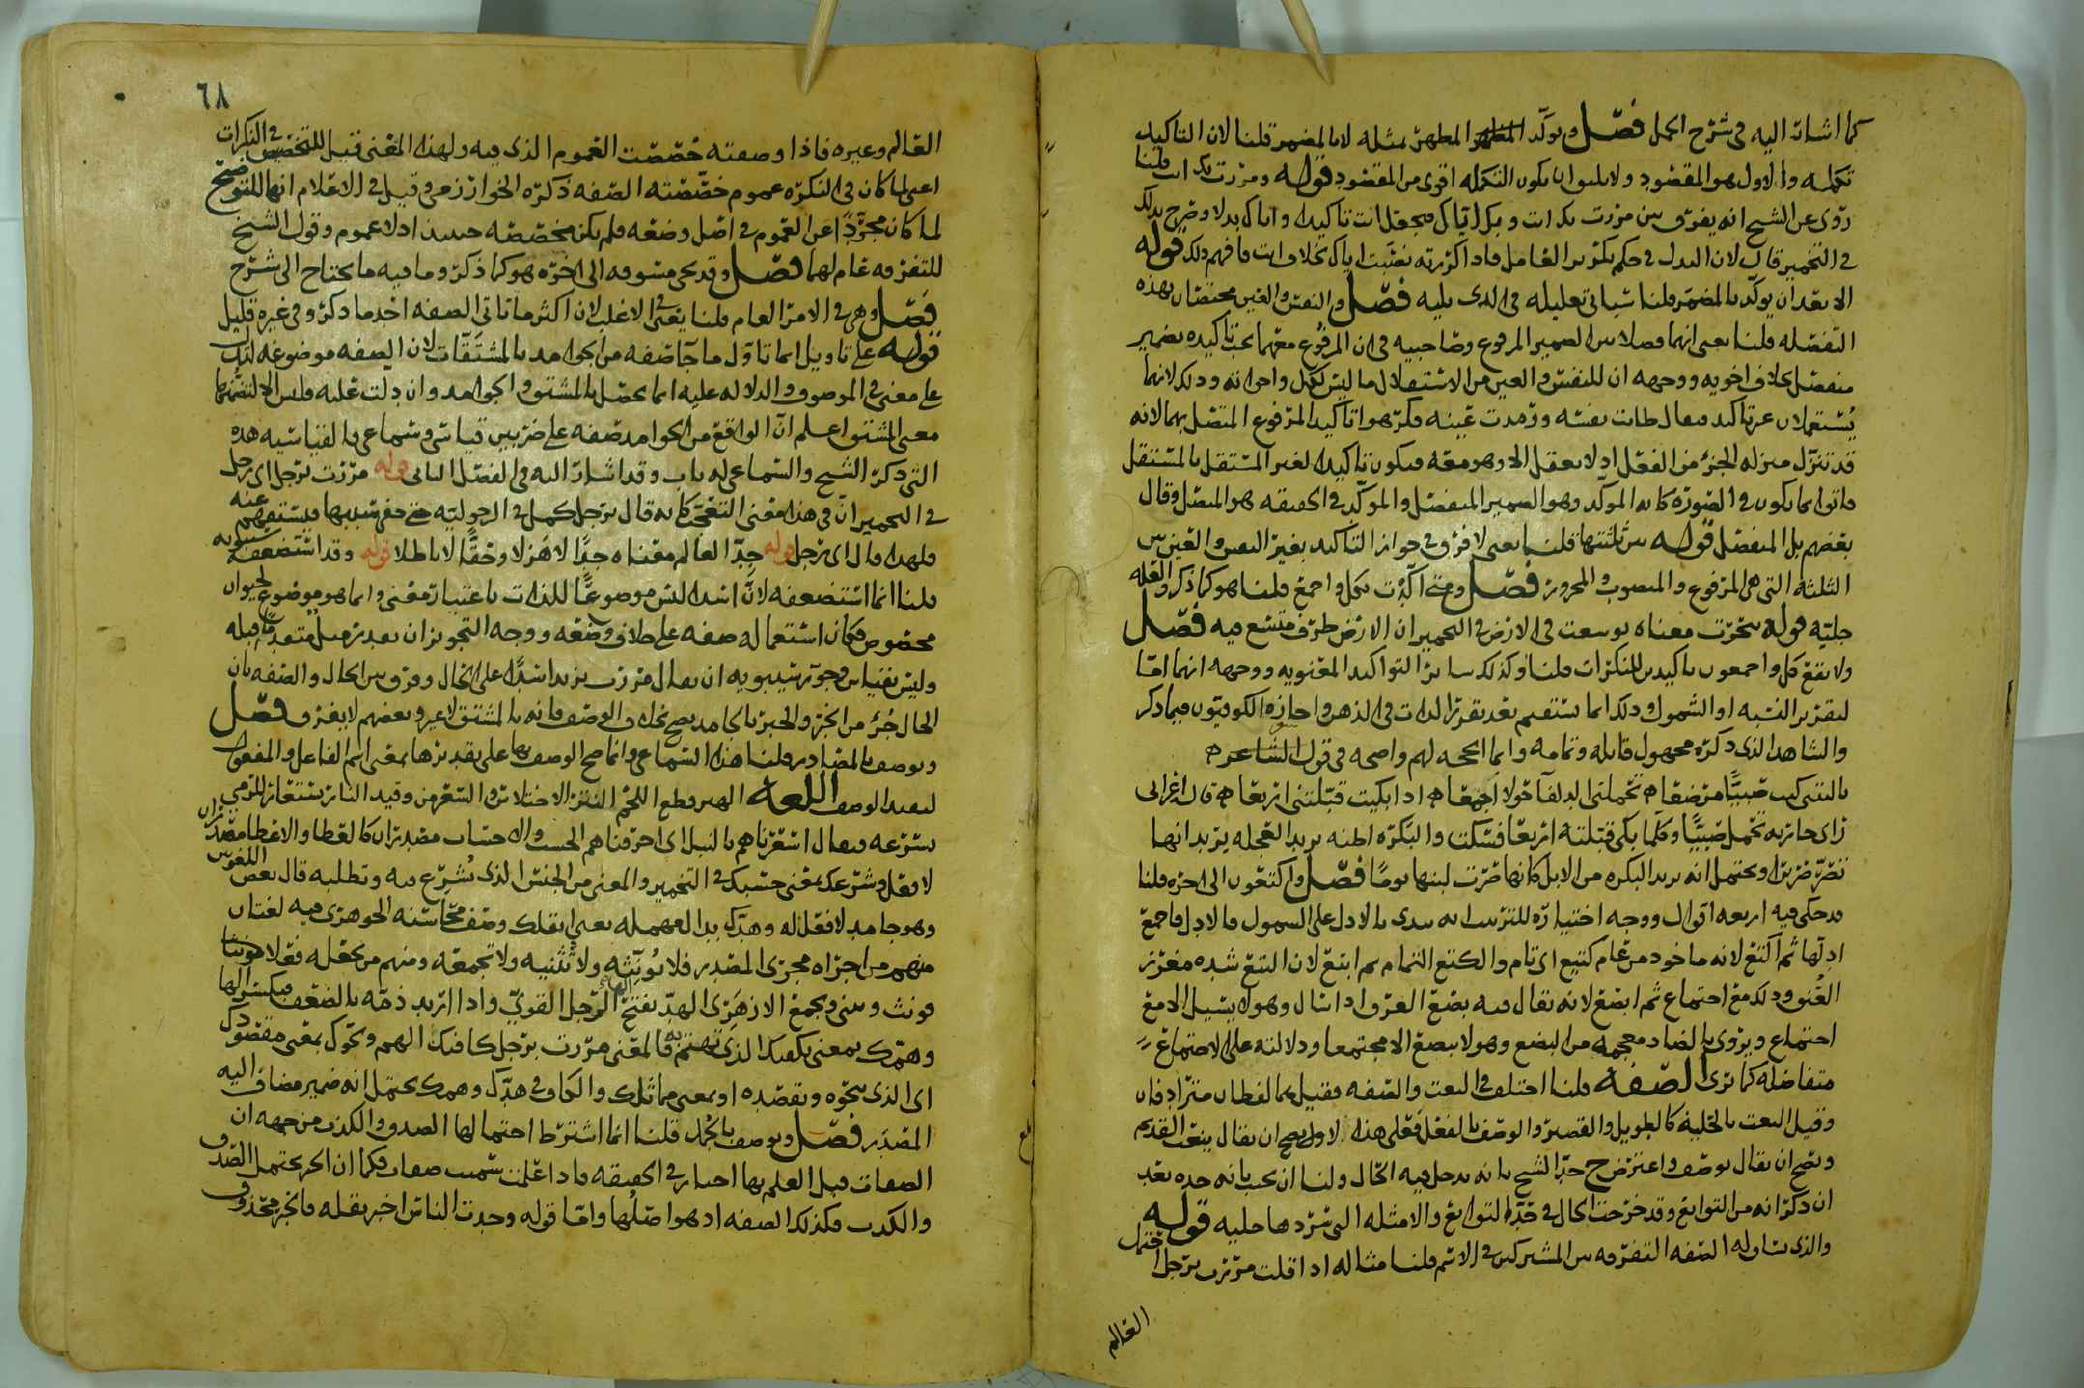 كما اشار اليه في شرح الجمل فصل ويؤكد المظهر بمثله لا بالمضمر قلنا لان التاكيد
تكمله والاول هو المقصود ولا يكون التكمله اقوى من المقصود قوله ومررت بك انت قلنا
روى عن الشيخ انه يفرق بين مررت بك انت وبك اياك فيجعل انت تاكيدا واياك بدلا وصرح بذلك
في التخمير قال لان البدل في حكم تكرير العامل فاذا كررته نصبت اياك بخلاف انت فافهم ذلك قوله
الا بعد ان يؤكد بالمضمر قلنا سياتي تعليله في الذي يليه فصل والنفس والعين مختصتان بهذه
التفصله قلنا يعني انهما فصلا بين الضمير المرفوع وصاحبيه في ان المرفوع معهما يجب تاكيده بضمير
منفصل بخلاف اخويه ووجهه ان للنفس والعين من الاستقلال ما ليس لكل واخواته وذلك لانهما
يستعملان غير تاكيد فيقال طابت نفسه ورمدت عينه فكرهوا تاكيد المرفوع المتصل بهما لانه
قد تنزل منزله الجزء من الفعل اذ لا يعقل الا وهو معه فيكون تاكيدا لغير المستقل بالمستقل
فاتوا بما يكون في الصوره كانه المؤكد وهو الضمير المنفصل والمؤكد في الحقيقه هو المتصل وقال
بعضهم بل المنفصل قوله بين ثلثتها قلنا يعني لا فرق في جواز التاكيد بغير النفس والعين بين
الثلثه التي هي المرفوع والمنصوب والمجرور فصل ومتى اكدت بكل واجمع قلنا هو كما ذكر والعله
جليه قوله تبحرت معناه توسعت في الارض في التخمير ان الارض ظرف متسع فيه فصل
ولا يقع كل واجمعون تاكيدين للنكرات قلنا وكذلك سائر التواكيد المعنويه ووجهه انهما اما
لتقرير النسبه او الشمول وذلك انما يستقيم بعد تقرر الذات في الذهن واجازه الكوفيون فيما ذكر
والشاهد الذي ذكره مجهول قائله وتمامه وانما الحجه لهم واضحه في قول الشاعر
يا ليتني كنت صبيا مرضعا تحملني الذلفا حولا اجمعا اذا بكيت قبلتني اربعا قال اعرابي
راى جاريه تحمل صبيا وكلما بكى قبلته اربعا فسكت والبكره اظنه يريد العجله يريد انها
تصر صريرا ويحتمل انه يريد البكره من الابل كانها صرت لبنها يوما فصل واكتعون الى اخره قلنا
قد حكى فيه اربعه اقوال ووجه اختياره للترتيب انه يبدى بالادل على الشمول فالادل فاجمع
ادلها ثم اكتع لانه ماخوذ من عام كتيع اي تام والكتع التمام ثم ابتع لان البتع شده مغرز
العنق وذلك مع اجتماع ثم ابضع لانه يقال فيه بضع العرق اذا سال وهو لا يسيل الا مع
اجتماع ويروى بالضاد معجمه من البضع وهو لا يبضع الا مجتمعا ودلالته على الاجتماع
متفاضله كما ترى الصفه قلنا اختلف في النعت والصفه فقيل هما لفظان مترادفان
وقيل النعت بالحليه كالطويل والقصير والوصف بالفعل فعلى هذه الاول يصح ان يقال ينعت القديم
ويصح ان يقال يوصف واعترض حد الشيخ بانه يدخل فيه الحال ولنا ان يجب بانه حده بعد
ان ذكر انه من التوابع وقد خرجت الحال في حد التوابع والامثله التي سردها جليه قوله
والذي تساق له الصفه التفرقه بين المشتركين في الاسم قلنا مثاله اذا قلت مررت برجل احتمل
العالم
٦٨
العالم وغيره فاذا وصفته خصصت العموم الذي فيه ولهذا المعنى قيل للتخصيص في النكرات
اعني لما كان في النكره عموم خصصته الصفه ذكره الخوارزمي وقيل في الاعلام انها للتوضيح
لما كان مجردا عن العموم في اصل وضعه فلم يكن مخصصه حينئذ اذ لا عموم وقول الشيخ
للتفرقه عام لهما فصل وقد تجي مسوقه الى اخره هو كما ذكر وما فيه ما يحتاج الى شرح
فصل وهي في الامر العام قلنا يعني في الاغلب لان اكثر ما تاتي الصفه احد ما ذكر وفي غيره قليل
قوله على تاويل انما تاول ما جا صفه من الجوامد بالمشتقات لان الصفه موضوعه لتدل
على معنى في الموصوف والدلاله عليه انما تحصل بالمشتق والجوامد وان دلت عليه فليس الا لتضمنها
معنى المشتق واعلم ان الواقع من الجوامد صفه على ضربين قياسي وسماعي فالقياسيه هذه
التي ذكر الشيخ والسماعي له باب وقد اشار اليه في الفصل الثاني قوله مررت برجل اي رجل
في التخمير ان في هذا معنى التعجب كانه قال برجل كمل في الرجوليه حتى خفي سببها فيستفهم عنه
فلهذا قال اي رجل قوله جد العالم معناه جدا لا هزلا وحقا لا باطلا قوله وقد استضعفه سيبويه
قلنا انما استضعفه لان اسدا ليس موضوعا للذات باعتبار معنى وانما هو موضوع لحيوان
مخصوص فكان استعماله صفه على خلاف وضعه ووجه التجويز ان يقدر مثل متعديا قبله
وليس بقياس وجوز سيبويه ان يقال مررت بزيد اسدا على الحال وفرق بين الحال والصفه بان
الحال جزء من الخبر والخبر بالجامد يصح بخلاف الوصف فانه بالمشتق لا غير وبعضهم لا يفرق فصل
ويوصف بالمصادر قلنا هذا السماعي وانما صح الوصف بها على تقديرها بمعنى اسم الفاعل والمفعول
ليفيد الوصف اللغه الهبر قطع اللحم النتر الاختلاس والسعر من وقيد النار يستعار للرمي
بسرعه فيقال اسعرناهم بالنبل اي احرقناهم الحسب والاحتساب مصدران كالعطا والاعطا مصدران
لا فعل وشرعك بمعنى حسبك في التخمير والمعنى من الجنس الذي تشرع فيه وتطلبه قال بعض اللغويين
وهو جامد لا فعل له وهدك بدال مهمله يعني اثقلك وصف محاسنه الجوهري فيه لغتان
منهم من اجراه مجرى المصدر فلا يؤنثه ولا يثنيه ولا يجمعه ومنهم من يجعله فعلا
فيؤنث ويثني ويجمع الازهري الهد بفتح الها الرجل القوي واذا اريد ذمه بالضعف فبكسر الها
وهمك بمعنى يكفيك الذي تهتم به فالمعنى مررت برجل كافيك الهم ونحوك بمعنى مقصودك
اي الذي تنحوه وتقصده او بمعنى مماثلك والكاف في هدك وهمك يحتمل انه ضمير مضاف اليه
المصدر فصل ويوصف بالجمل قلنا انما اشترط احتمالها الصدق والكذب من جهه ان
الصفات قبل العلم بها اخبار في الحقيقه فاذا علمت سميت صفات فكما ان الخبر يحتمل الصدق
والكذب فكذلك الصفه اذ هو اصلها واما قوله وجدت الناس اخبر تقله فالخبر محذوف